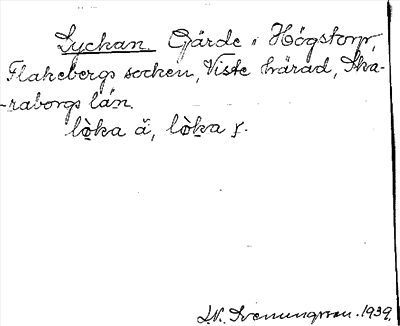 Lyckan. Gärde i Högstorp,
Flakebergs socken, Viste härad, Ska-
-raborgs län.
lò̱ka ä, lò̱ka
Svenungsson. 1939.